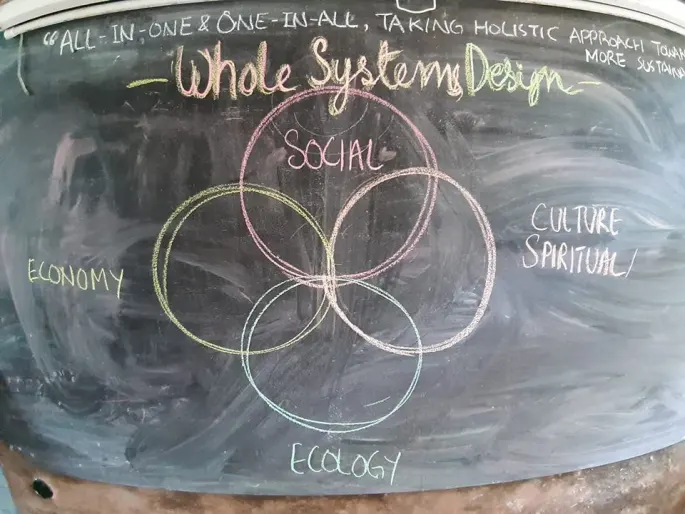 "ALL-IN-ONE & ONE-IN-ALL, TAKING HOLISTIC APPROACH
MORE
- Whole Systems Design -
SOCIAL
CULTURE
SPIRITUAL/
ECONOMY
ECOLOGY